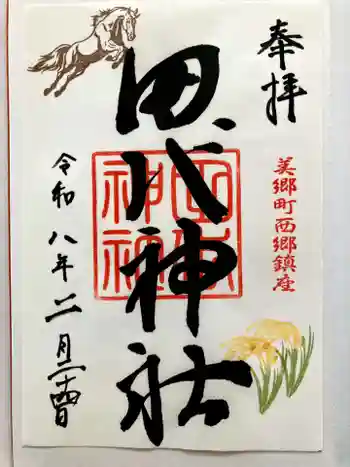 奉拝
美郷町西郷鎮座
田代神社
田代神社
令和八年二月二十四日